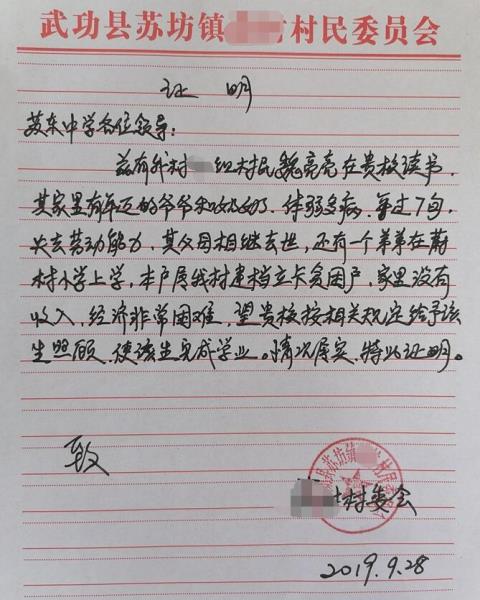 武功县苏坊镇 村民委员会
证 明
苏东中学各位领导：
兹有我村 组村民魏亮亮在贵校读书，
其家里有年迈的爷爷和奶奶，体弱多病，年过7旬，
失去劳动能力，其父母相继去世，还有一个弟弟在蔚
村小学上学，本户属我村建档立卡贫困户，家里没有
收入，经济非常困难，望贵校按相关规定给予该
生照顾，使该生完成学业。情况属实，特此证明。
致
村委会
2019.9.28